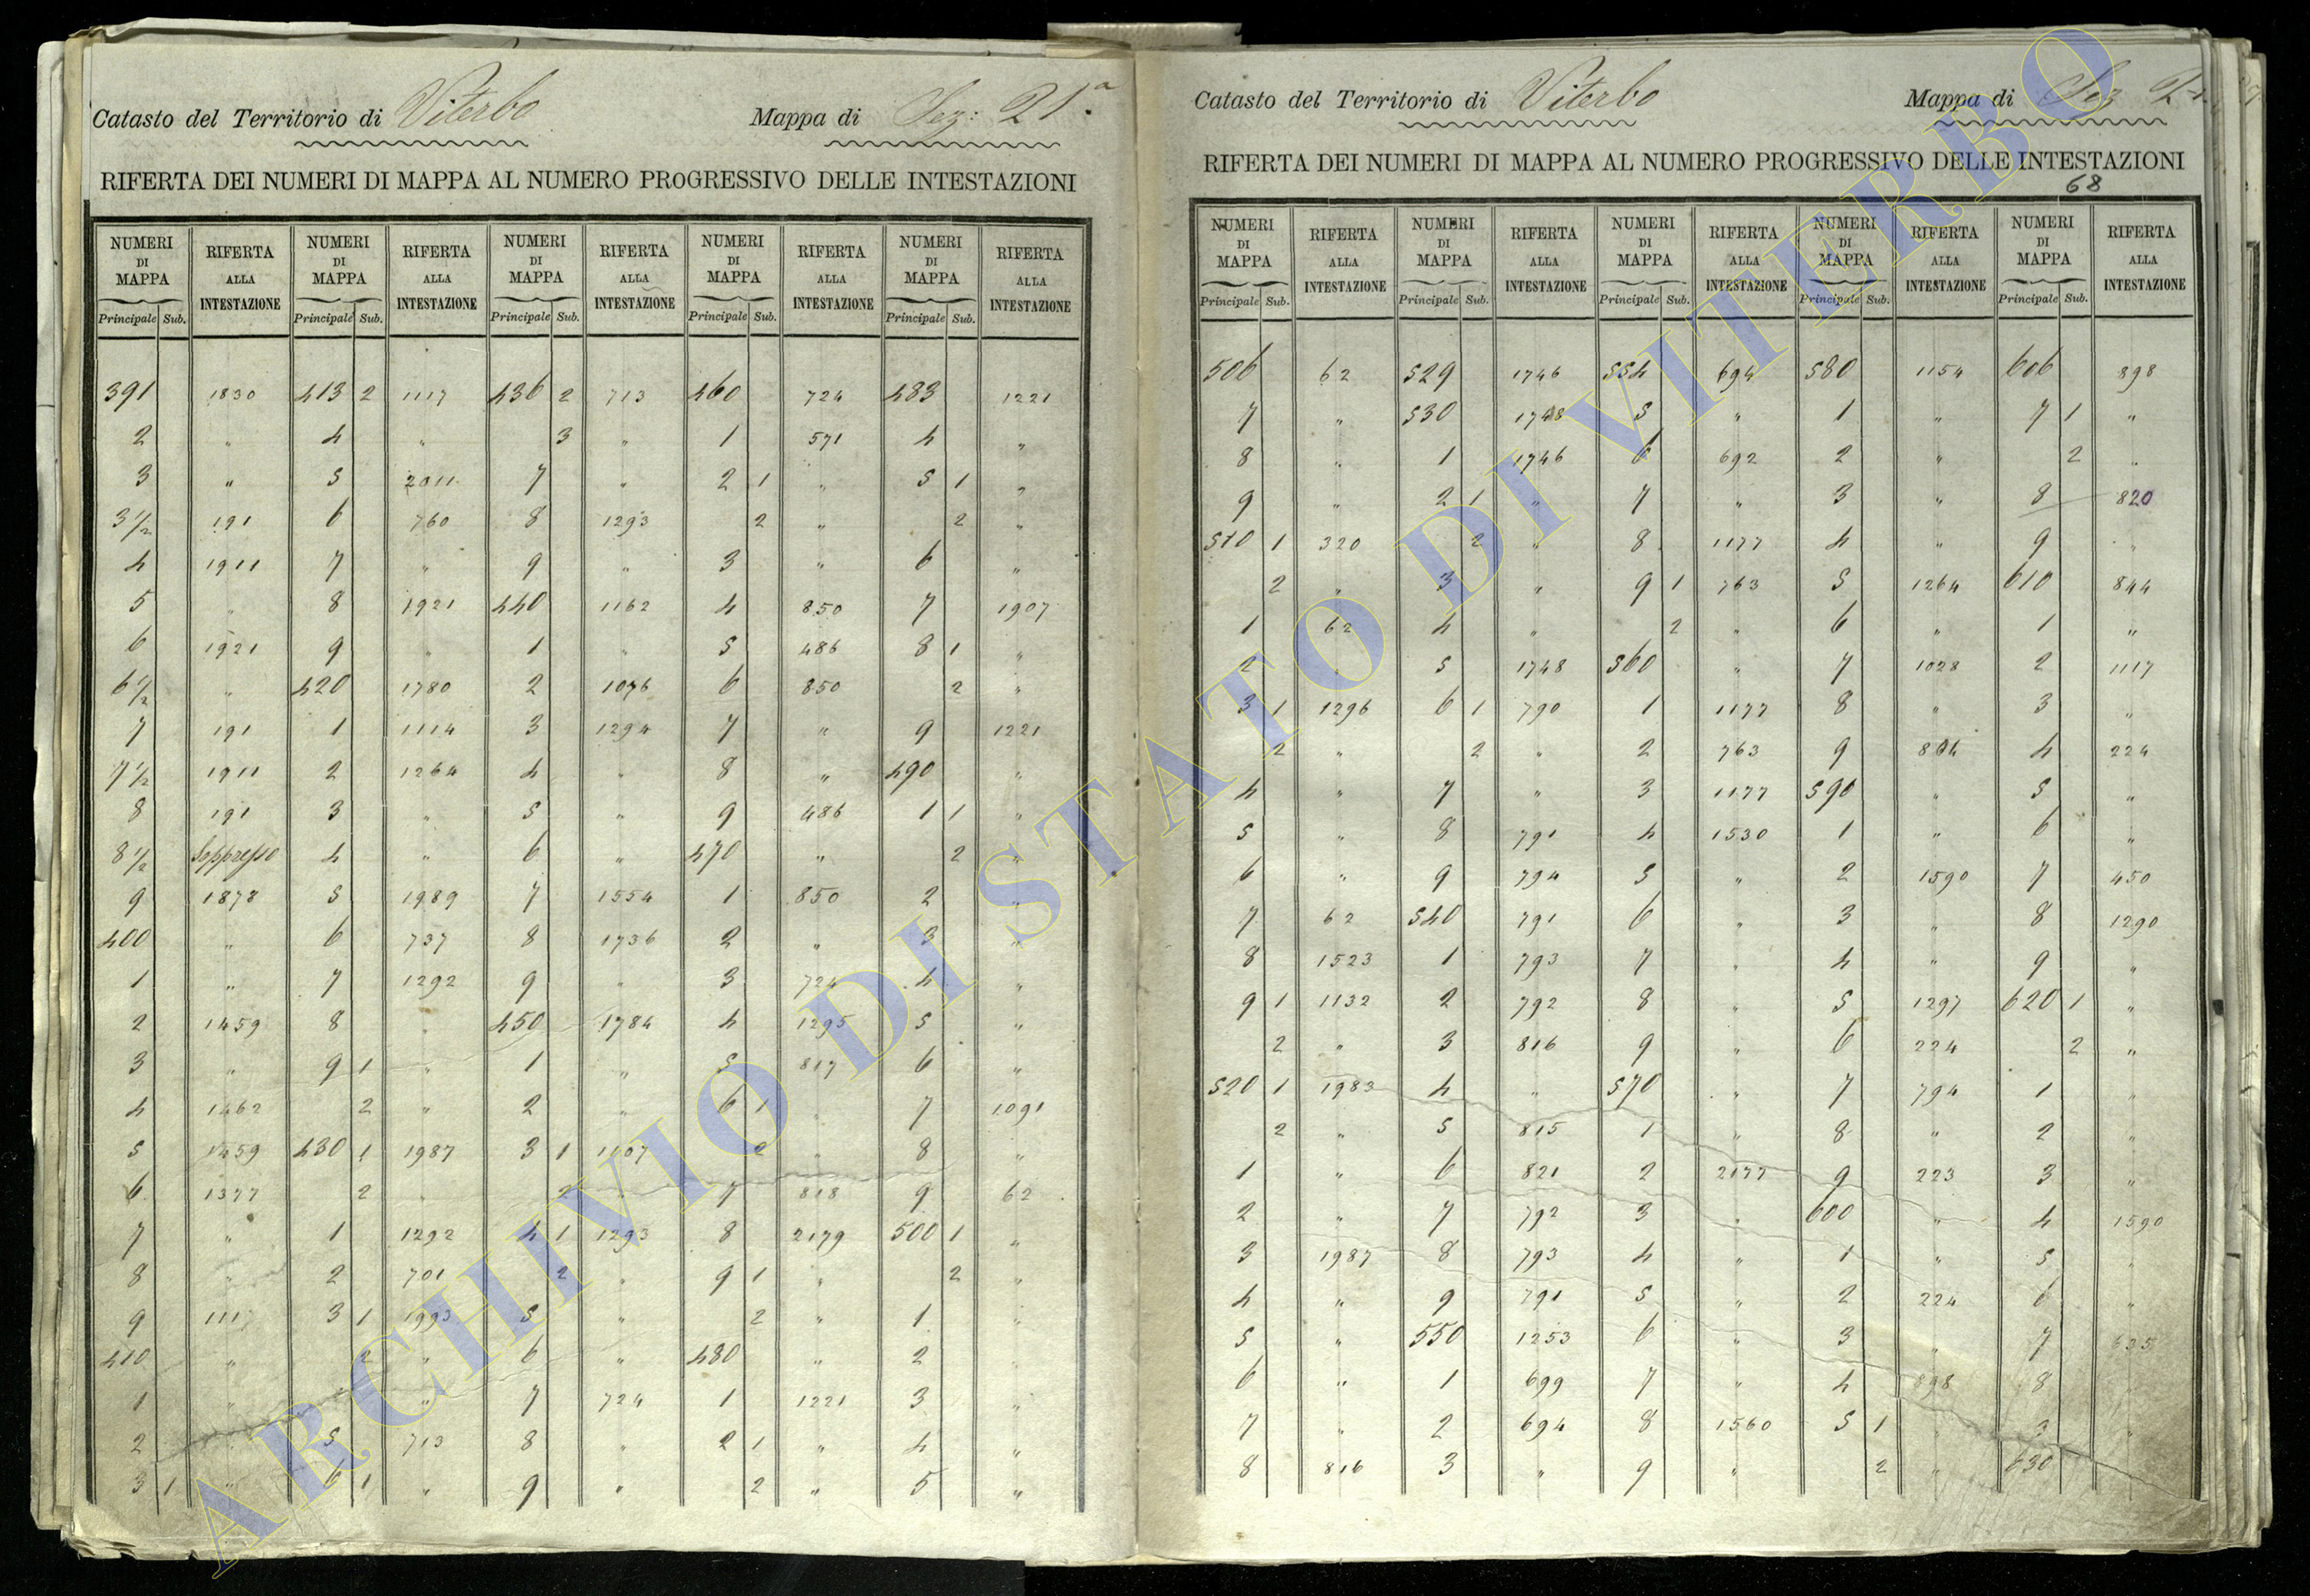 Catasto del Territorio di Viterbo Mappa di Sez: 21.a
RIFERTA DEI NUMERI DI MAPPA AL NUMERO PROGRESSIVO DELLE INTESTAZIONI
NUMERI DI MAPPA RIFERTA ALLA INTESTAZIONE NUMERI DI MAPPA RIFERTA ALLA INTESTAZIONE NUMERI DI MAPPA RIFERTA ALLA INTESTAZIONE NUMERI DI MAPPA RIFERTA ALLA INTESTAZIONE NUMERI DI MAPPA RIFERTA ALLA INTESTAZIONE
Principale Sub. Principale Sub. Principale Sub. Principale Sub. Principale Sub.
391 1830 413 2 1117 436 2 713 460 724 483 1221
2 " 4 " 3 " 1 571 4 "
3 " 5 2011 7 " 2 1 " 5 1 "
3 1/2 191 6 760 8 1293 2 " 2 "
4 1911 7 " 9 " 3 " 6 "
5 " 8 1921 440 1162 4 850 7 1907
6 1921 9 " 1 " 5 486 8 1 "
6 1/2 " 420 1780 2 1076 6 850 2 "
7 191 1 1114 3 1294 7 " 9 1221
7 1/2 1911 2 1264 4 " 8 " 490 "
8 191 3 " 5 " 9 486 1 1 "
8 1/2 Soppresso 4 " 6 " 470 " 2 "
9 1878 5 1989 7 1554 1 850 2 "
400 " 6 737 8 1736 2 " 3 "
1 " 7 1292 9 " 3 724 4 "
2 1459 8 " 450 1784 4 1295 5 "
3 " 9 1 " 1 " 5 817 6 "
4 1462 2 " 2 " 6 1 " 7 1091
5 1459 430 1 1987 3 1 1107 2 " 8 "
6 1377 2 " 2 " 7 818 9 62
7 " 1 1292 4 1 1293 8 2179 500 1 "
8 " 2 701 2 " 9 1 " 2 "
9 1117 3 1 1993 5 " 2 " 1 "
410 " 2 " 6 " 480 " 2 "
1 " 4 " 7 724 1 1221 3 "
2 " 5 713 8 " 2 1 " 4 "
3 1 " 6 1 " 9 " 2 " 5 "
Catasto del Territorio di Viterbo Mappa di Sez 21
RIFERTA DEI NUMERI DI MAPPA AL NUMERO PROGRESSIVO DELLE INTESTAZIONI
68
NUMERI DI MAPPA RIFERTA ALLA INTESTAZIONE NUMERI DI MAPPA RIFERTA ALLA INTESTAZIONE NUMERI DI MAPPA RIFERTA ALLA INTESTAZIONE NUMERI DI MAPPA RIFERTA ALLA INTESTAZIONE NUMERI DI MAPPA RIFERTA ALLA INTESTAZIONE
Principale Sub. Principale Sub. Principale Sub. Principale Sub. Principale Sub.
506 62 529 1746 554 694 580 1154 606 898
7 " 530 1748 5 " 1 " 7 1 "
8 " 1 1746 6 692 2 " 2 "
9 " 2 1 " 7 " 3 " 8 820
510 1 320 2 " 8 1177 4 " 9 "
2 " 3 " 9 1 763 5 1264 610 844
1 62 4 " 2 " 6 " 1 "
2 " 5 1748 560 " 7 1028 2 1117
3 1 1296 6 1 790 1 1177 8 " 3 "
2 " 2 " 2 763 9 804 4 224
4 " 7 " 3 1177 590 " 5 "
5 " 8 791 4 1530 1 " 6 "
6 " 9 794 5 " 2 1590 7 450
7 62 540 791 6 " 3 " 8 1290
8 1523 1 793 7 " 4 " 9 "
9 1 1132 2 792 8 " 5 1297 620 1 "
2 " 3 816 9 " 6 224 2 "
520 1 1983 4 " 570 " 7 794 1 "
2 " 5 815 1 " 8 " 2 "
1 " 6 821 2 2177 9 223 3 "
2 " 7 792 3 " 600 " 4 1590
3 1987 8 793 4 " 1 " 5 "
4 " 9 791 5 " 2 224 6 "
5 " 550 1253 6 " 3 " 7 635
6 " 1 699 7 " 4 898 8 "
7 " 2 694 8 1560 5 1 " 9 "
8 816 3 " 9 " 2 " 630
ARCHIVIO DI STATO DI VITERBO